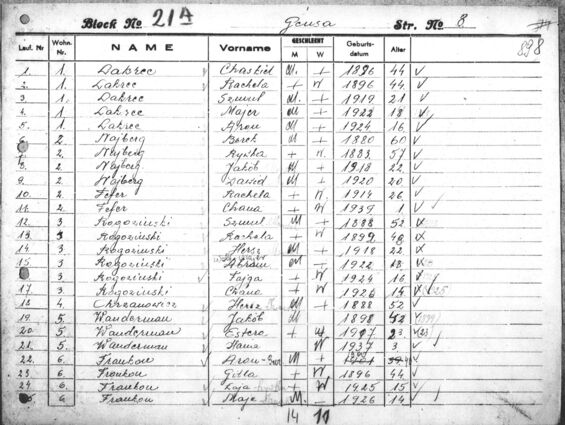 Block № 21A Gęnsa Str. № 8
898
Lauf. Nr Wohn. Nr. NAME Vorname GESCHLECHT M W Geburts- datum Alter
1. 1. Dakrec Chaskiel M. + 1896 44 ✓
2. 1. Dakrec Rachela + W 1896 44 ✓
3. 1. Dakrec Szmul M. + 1919 21 ✓
4. 1. Dakrec Majer M + 1922 18 ✓
5. 1. Dakrec Aron M + 1924 16 ✓
2. Najberg Berek M + 1880 60 ✓
2. Najberg Ryfka + W 1883 57 ✓
8. 2. Najberg Jakób M + 1918 22 ✓
9. 2. Najberg Dawid M + 1920 20 ✓
10. 2. Fefer Rachela + W 1914 26 ✓
11. 2. Fefer Chana + W 1939 1 ✓
12. 3 Rogoziński Szmul M + 1888 52 ×
13. 3 Rogoziński Rachela + W 1899 ×
14. 3 Rogoziński Hersz M + 1918 22 ×
15. 3 Rogoziński Abram M + 1922 18 ×
3 Rogoziński Fajga + W 1924 16 ✓
17. 3 Rogoziński Chana + W 1926
18. 4 Chrzanowicz Hersz M + 1888 52 ✓
19. 5. Wanderman Jakób M + 1898 42
20. 5. Wanderman Estera + W 1917 23
21. 5. Wanderman Hana + W 1937 3 ✓
22. 6. Frankon M +
23. 6. Frankon Gitla + W 1896 44 ✓
24. 6. Frankon Laja + W 1925 15 ✓
6. Frankon + 1926 14 ✓
14 11